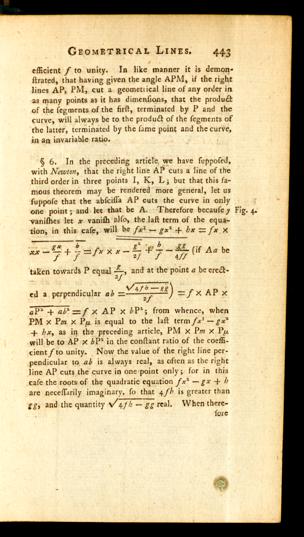 GEOMETRICAL LINES. 443
efficient f to unity. In like manner it is demon-
ſtrated, that having given the angle APM, if the right
lines AP, PM, cut a geometrical line of any order in
as many points as it has dimenſions, that the product
of the ſegments of the firſt, terminated by P and the
curve, will always be to the product of the ſegments of
the latter, terminated by the ſame point and the curve,
in an invariable ratio.
§ 6. In the preceding article we have ſuppoſed,
with Newton, that the right line AP cuts a line of the
third order in three points I, K, L; but that this fa-
mous theorem may be rendered more general, let us
ſuppoſe that the abſciſſa AP cuts the curve in only
one point; and let that be A. Therefore becauſe y Fig. 4.
vaniſhes let x vaniſh alſo, the laſt term of the equa-
tion, in this caſe, will be fx³ − gx² + hx = fx ×
xx − gx/f + h/f = fx × x − g/2f² + h/f − gg/4ff (if Aa be
taken towards P equal g/2f, and at the point a be erect-
ed a perpendicular ab = √4fh − gg/2f) = f × AP ×
aP² + ab² = f × AP × bP²; from whence, when
PM × Pm × Pμ is equal to the laſt term fx³ − gx²
+ hx, as in the preceding article, PM × Pm × Pμ
will be to AP × bP² in the conſtant ratio of the coeffi-
cient f to unity. Now the value of the right line per-
pendicular to ab is always real, as often as the right
line AP cuts the curve in one point only; for in this
caſe the roots of the quadratic equation fx² − gx + h
are neceſſarily imaginary, ſo that 4fh is greater than
gg, and the quantity √4fh − gg real. When there-
fore